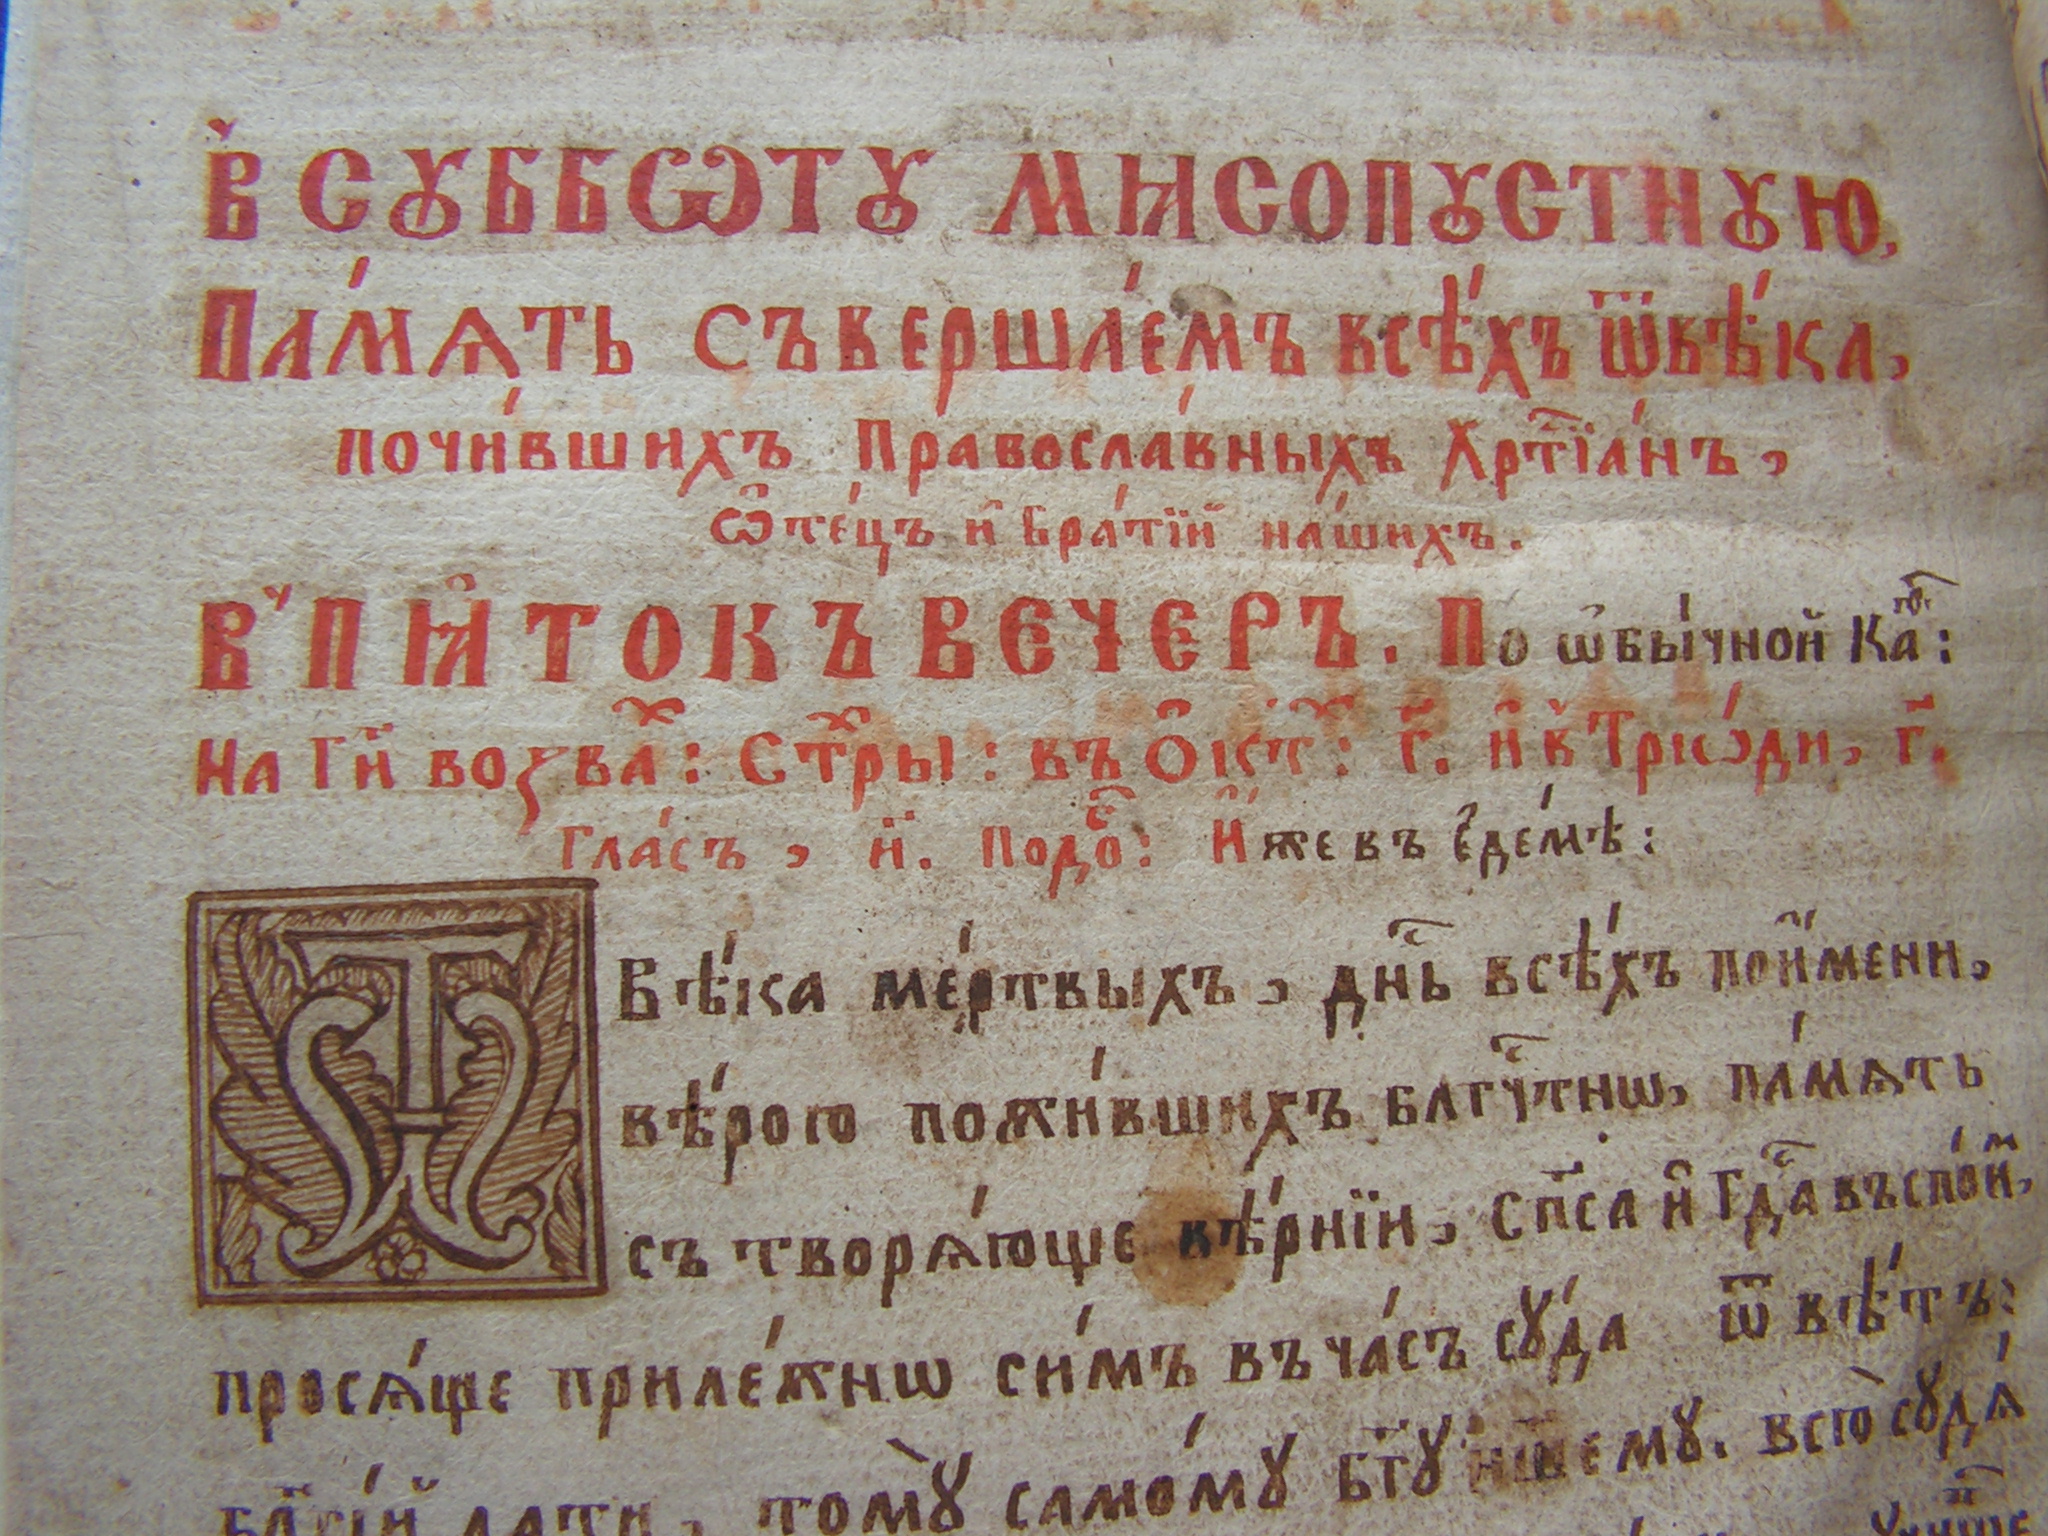 В СꙊББѠТꙊ МꙖСОПꙊСТНꙊЮ,
Па́мѧть съверша́емъ всѣ́хъ ѿвѣ́ка,
почи́вшихъ Правосла́вныхъ Хрⷭ҇тїа́нъ,
Ѻ҆те́цъ и҆ Бра́тїй на́шихъ.
В ПꙖ҆ТОКЪ ВЕЧЕРЪ. По ѡ҆бы́чной Каⷴ҇:
На Гд҃и воззваⷯ: Стⷯры: въ Ѻ҆кⷯт: г҃. и҆ в Трїѡ́ди, г҃.
Гла́съ, и҃. Подоⷠ: И҆́же въ Е҆де́мѣ:
Ѿ Вѣ́ка ме́ртвыхъ, дне́сь всѣ́хъ пои҆́мени,
вѣ́рою пожи́вшихъ благчⷭ҇тнѡ, па́мѧть
съ творѧ́юще вѣ́рнїи, Сп҃са и҆ Гдⷭ҇а въспои́ⷨ,
просѧ́ще прилѣ́жнѡ си́мъ въ ча́съ сꙋда́ ѿвѣ́тъ:
бл҃гі́й да́ти, томꙋ̀ само́мꙋ бг҃ꙋ на́шемꙋ. всю̀ сꙋдѧ́